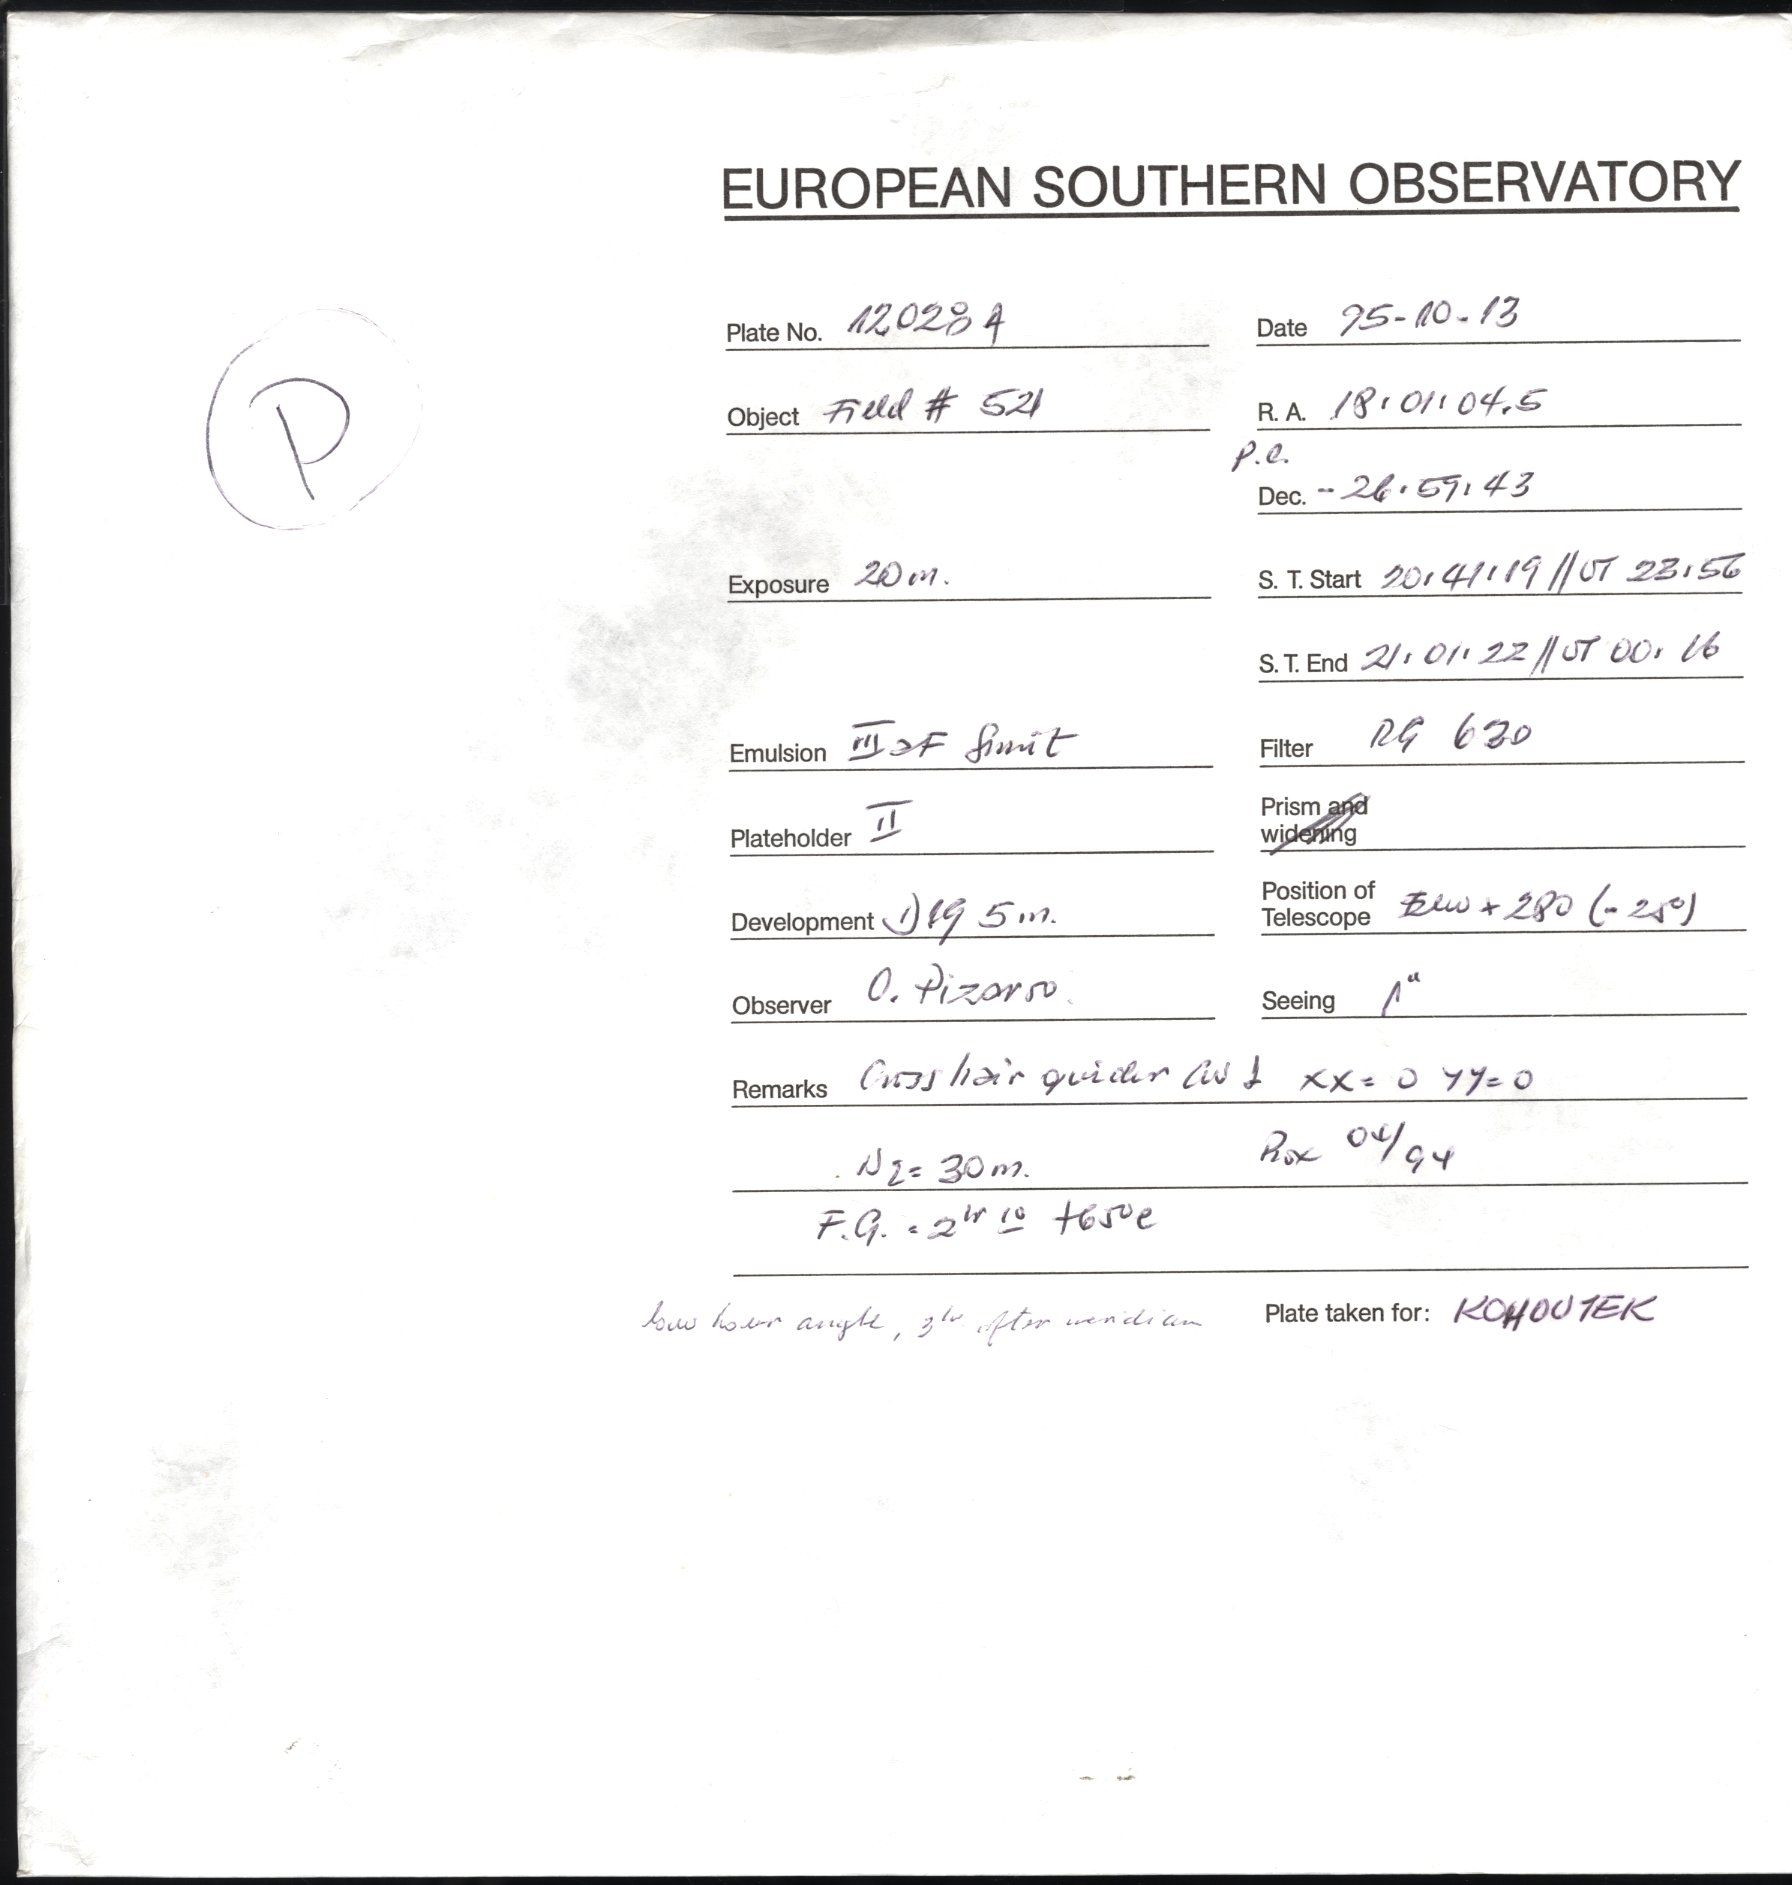 EUROPEAN SOUTHERN OBSERVATORY
P
Plate No. 12028 A
Date 95-10-13
Object Field # 521
R. A. 18:01:04.5
P.C.
Dec. -26:59:43
Exposure 20 m.
S. T. Start 20:41:19 // UT 23:56
S. T. End 21:01:22 // UT 00:16
Emulsion III aF
Filter RG 630
Plateholder II
Prism and
widening
Development 19 5 m.
Position of
Telescope + 280
Observer O. Pizarro.
Seeing 1"
Remarks Cross hair guider XX = 0 YY = 0
N2 = 30 m.
Box 04/94
F.G. = 2hr
low hour angle, 3hr after meridian
Plate taken for: KOHOUTEK